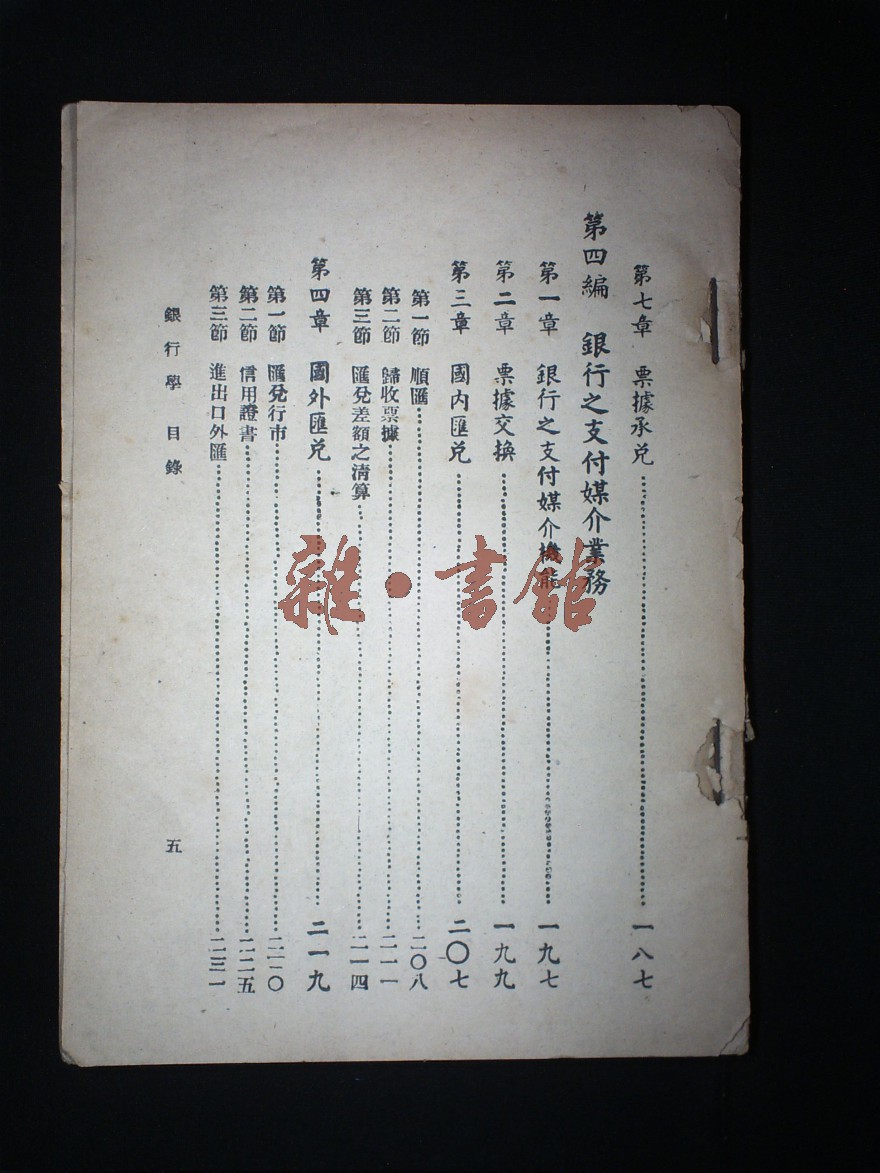 第七章 票據承兌……一八七
第四編 銀行之支付媒介業務
第一章 銀行之支付媒介機能……一九七
第二章 票據交換……一九九
第三章 國內匯兌……二〇七
第一節 順匯……二〇八
第二節 歸收票據……二一一
第三節 匯兌差額之清算……二一四
第四章 國外匯兌……二一九
第一節 匯兌行市……二二〇
第二節 信用證書……二二五
第三節 進出口外匯……二三一
銀行學 目錄 五
雜·書館